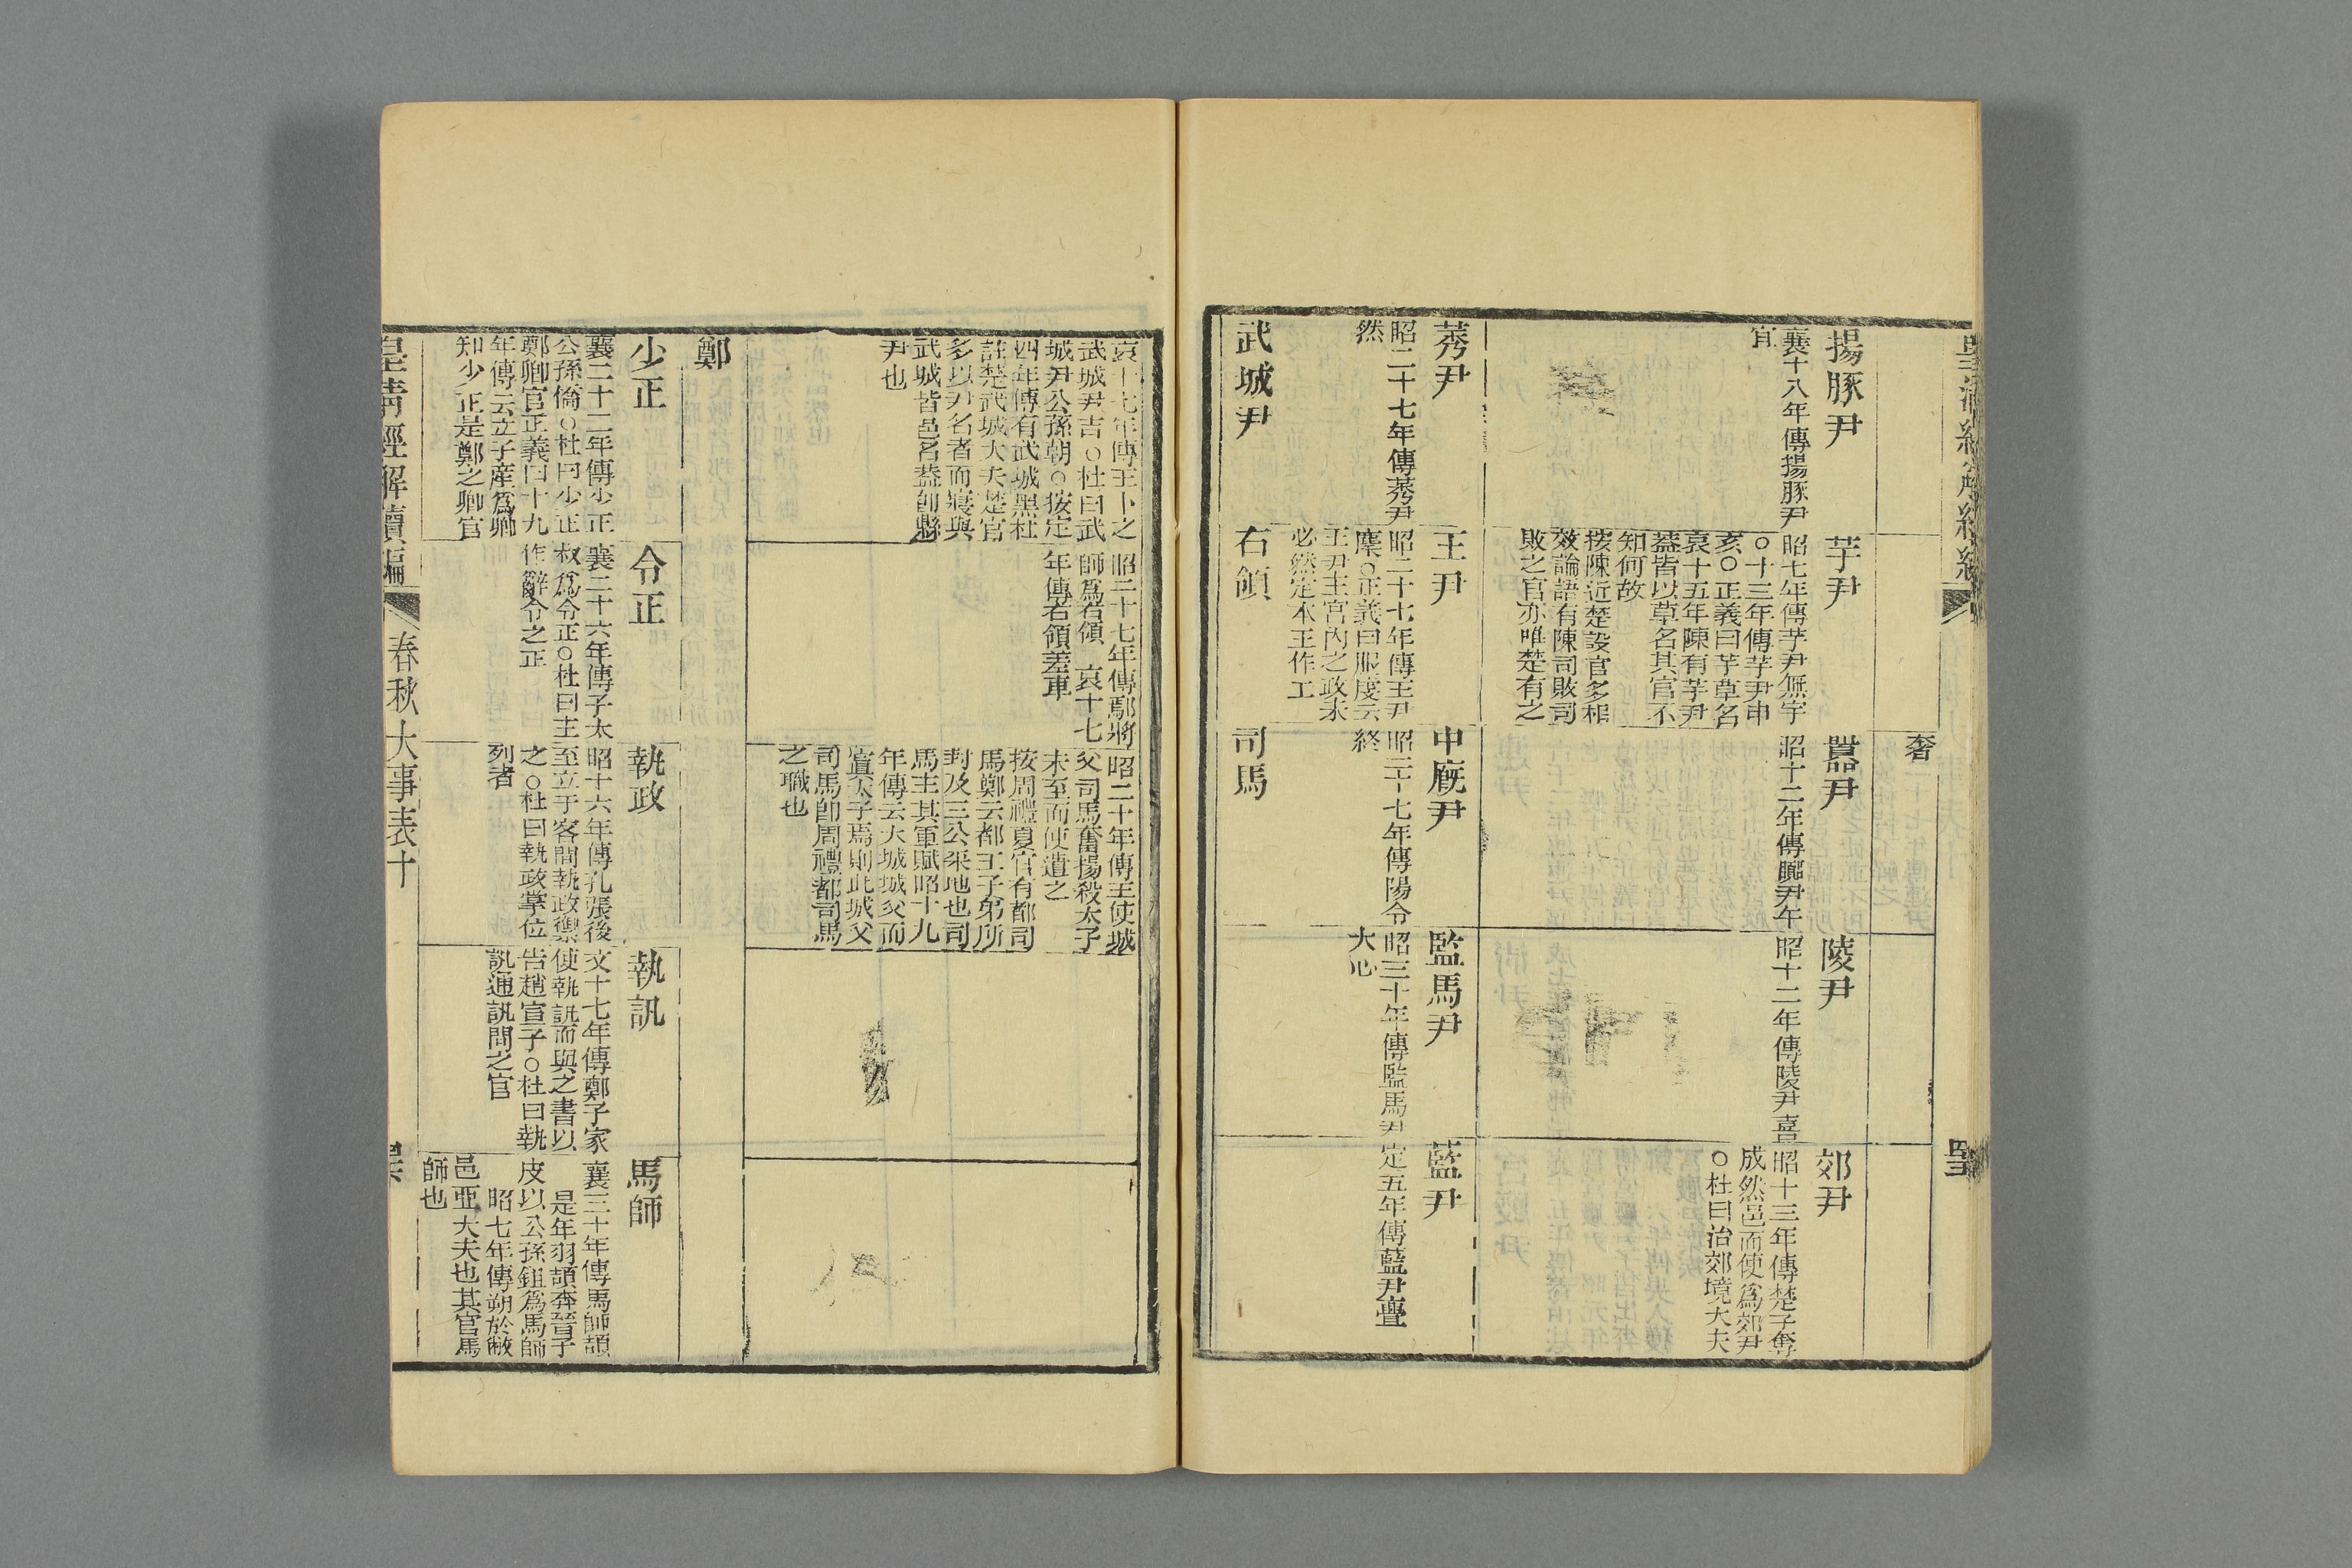 奢
揚豚尹
襄十八年傳揚豚尹
宜
芋尹
昭七年傳芋尹無宇
○十三年傳芋尹申
亥○正義曰芋草名
哀十五年陳有芋尹
葢皆以草名其官不
知何故
按陳近楚設官多相
效論語有陳司敗司
敗之官亦唯楚有之
囂尹
昭十二年傳囂尹午
陵尹
昭十二年傳陵尹喜
郊尹
昭十三年傳楚子奪
成然邑而使爲郊尹
○杜曰治郊境大夫
莠尹
昭二十七年傳莠尹
然
王尹
昭二十七年傳王尹
麇○正義曰服虔云
王尹主宮內之政未
必然定本王作工
中廐尹
昭二十七年傳陽令
終
監馬尹
昭三十年傳監馬尹
大心
藍尹
定五年傳藍尹亹
武城尹
右領
司馬
哀十七年傳王卜之
武城尹吉○杜曰武
城尹公孫朝○按定
四年傳有武城黑杜
註楚武城大夫楚官
多以尹名者而寢與
武城皆邑名葢卽縣
尹也
昭二十七年傳鄢將
師爲右領 哀十七
年傳右領差車
昭二十年傳王使城
父司馬奮揚殺太子
未至而使遣之
按周禮夏官有都司
馬鄭云都王子弟所
封及三公采地也司
馬主其軍賦昭十九
年傳云大城城父而
寘太子焉則此城父
司馬卽周禮都司馬
之職也
鄭
少正
襄二十二年傳少正
公孫僑○杜曰少正
鄭卿官正義曰十九
年傳云立子產爲卿
知少正是鄭之卿官
令正
襄二十六年傳子太
叔爲令正○杜曰主
作辭令之正
執政
昭十六年傳孔張後
至立于客間執政禦
之○杜曰執政掌位
列者
執訊
文十七年傳鄭子家
使執訊而與之書以
告趙宣子○杜曰執
訊通訊問之官
馬師
襄三十年傳馬師頡
是年羽頡奔晉子
皮以公孫鉏爲馬師
昭七年傳朔於敝
邑亞大夫也其官馬
師也
皇清經解續編
春秋大事表十